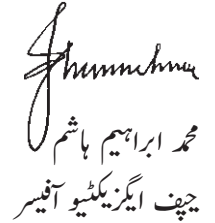 محمد ابراہیم ہاشم
چیف ایگزیکٹیو آفیسر